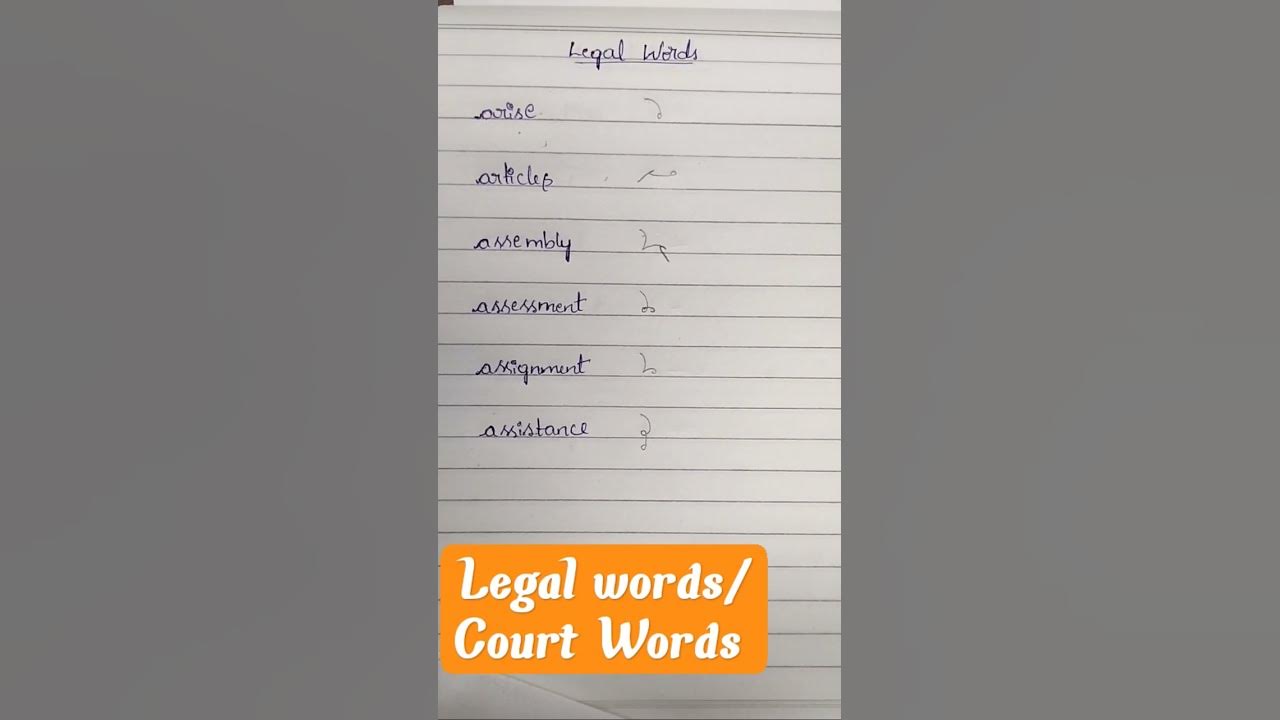 Legal Words
arise
articles
assembly
assessment
assignment
assistance
Legal words/
Court Words